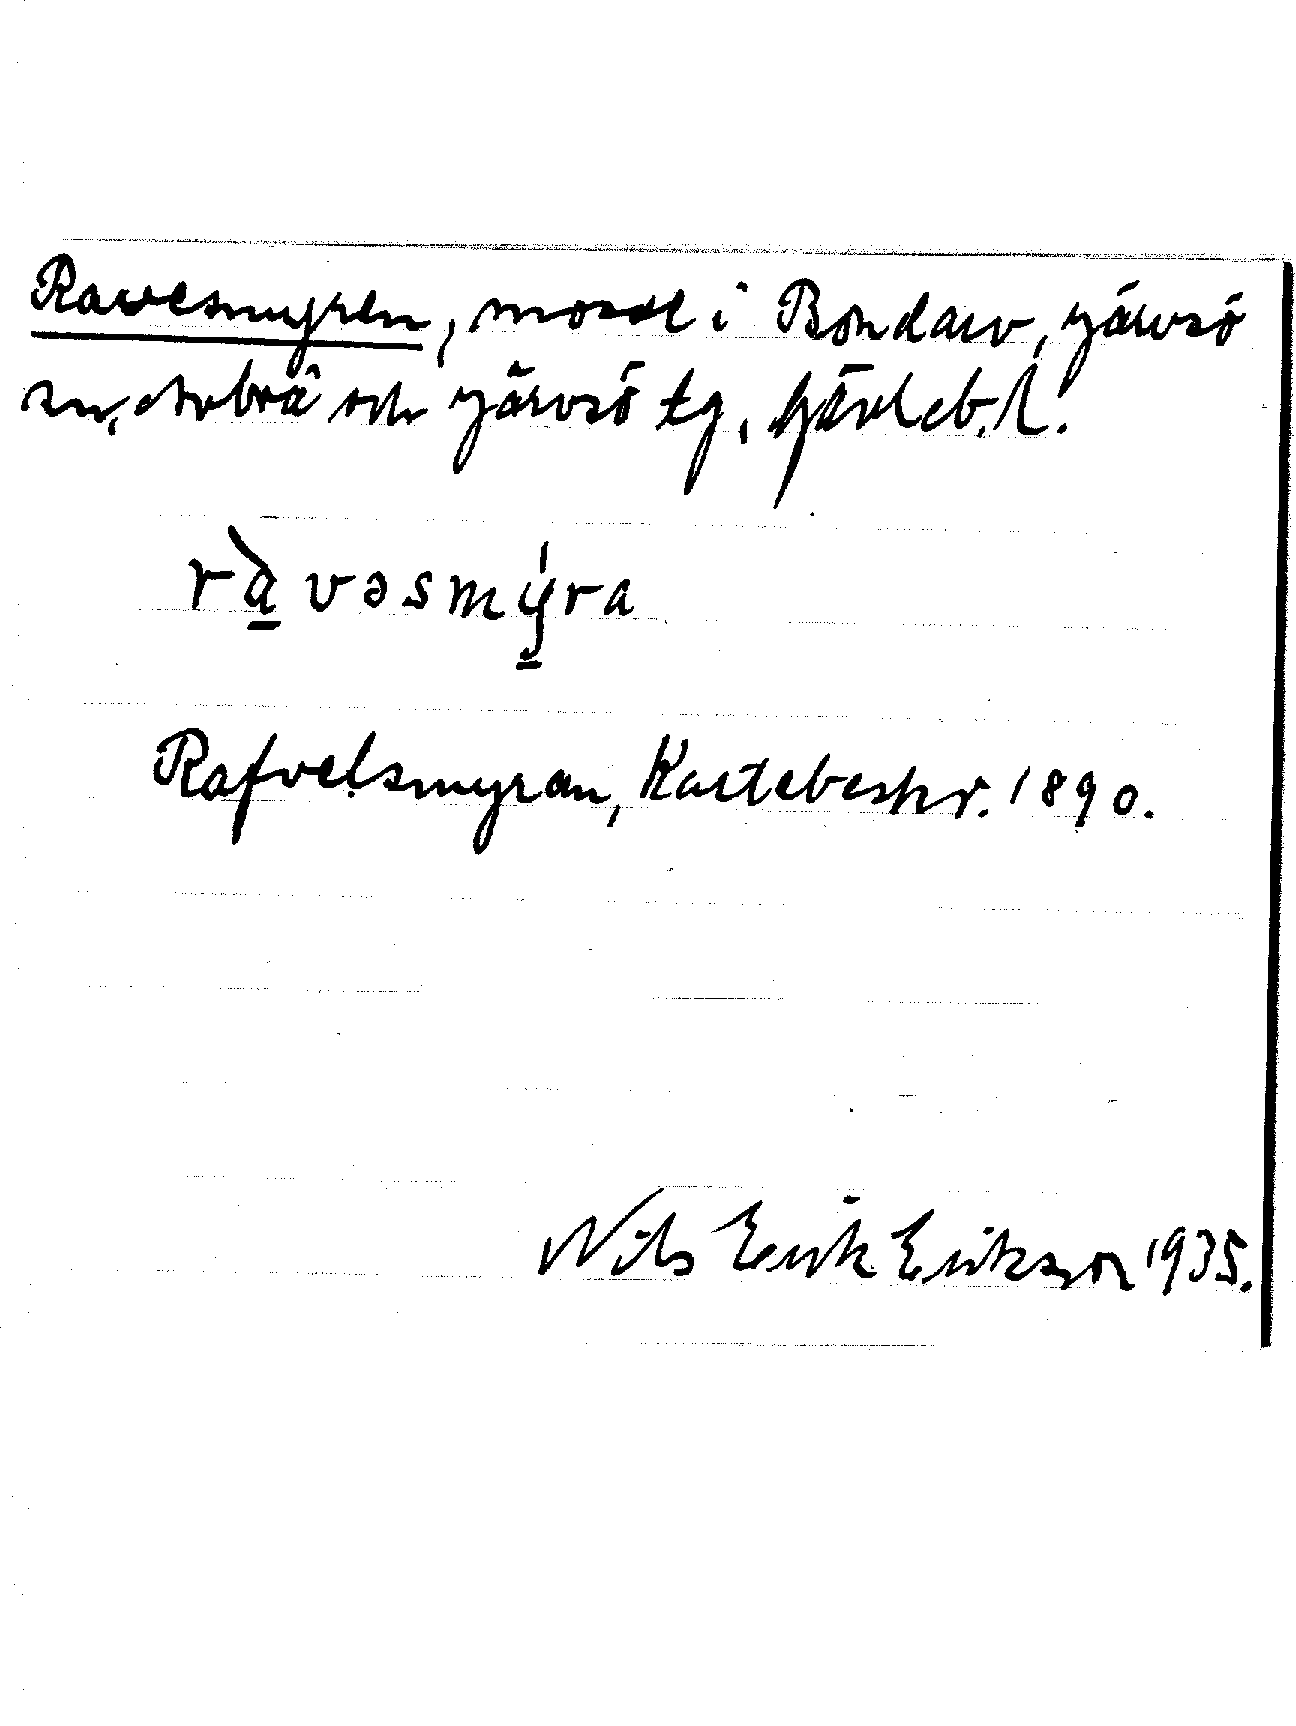 Ravesmyren, mosse i Bondarv, Järvsö
sn, Arbrå och Järvsö tg, Gävleb. l.
rà̱vəsmý̱ra
Rafvelsmyran, Kartebeskr. 1890.
Nils Erik Eriksson 1935.